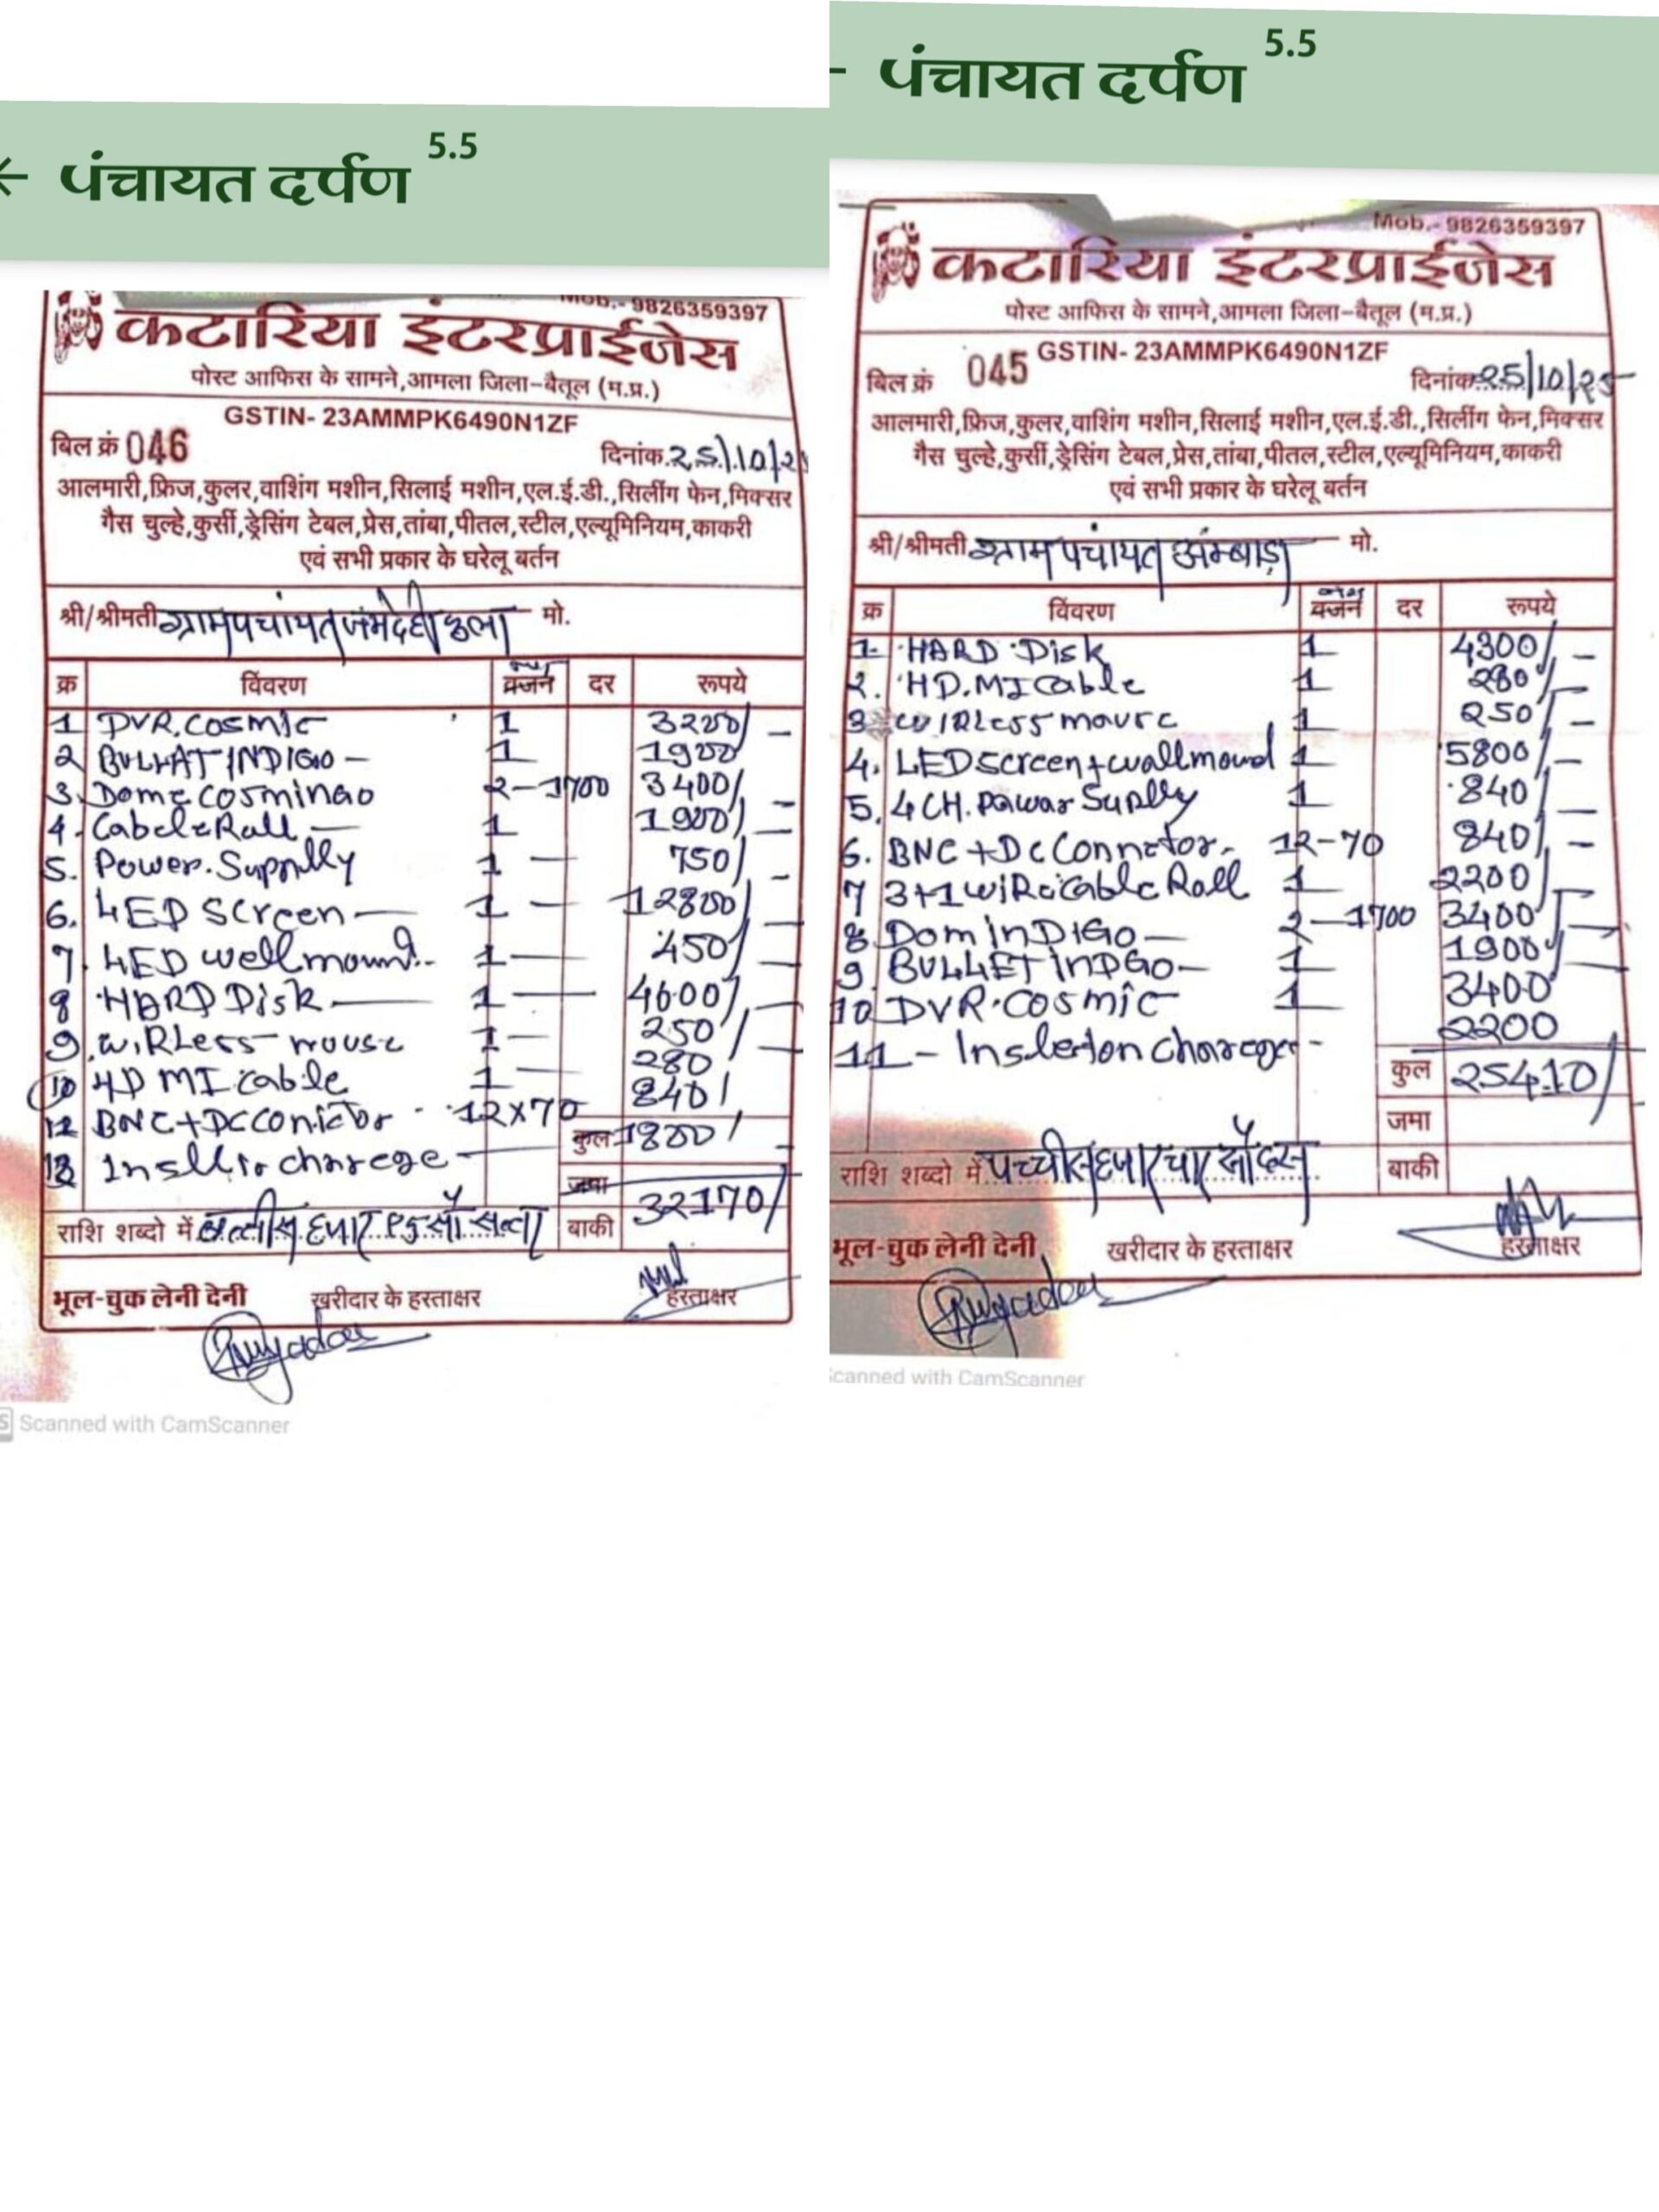 ← पंचायत दर्पण 5.5
Mob.- 9826359397
कटारिया इंटरप्राईजेस
पोस्ट आफिस के सामने,आमला जिला-बैतूल (म.प्र.)
GSTIN- 23AMMPK6490N1ZF
बिल क्रं 046 दिनांक.25/10/2
आलमारी,फ्रिज,कुलर,वाशिंग मशीन,सिलाई मशीन,एल.ई.डी.,सिलींग फेन,मिक्सर
गैस चुल्हे,कुर्सी,ड्रेसिंग टेबल,प्रेस,तांबा,पीतल,स्टील,एल्यूमिनियम,काकरी
एवं सभी प्रकार के घरेलू बर्तन
श्री/श्रीमती ग्रामपचांयत मो.
क्र विंवरण वजन दर रूपये
1 DVR.COSMIC 1 3200/-
2 BULLAT INDIGO - 1 1900
3. Dome COSMINGO 2-1700 3400/-
4. Cabele Rall - 1 1900/-
5. Power.Suppnlly 1 - 750/-
6. LED Screen - 1 - 12800/-
7. LED wellmount.- 1 - 450/-
8 HARD Disk - 1 - 4600/-
9. WIRLess mouse 1- 250/-
10 HD MI Cable 1- 280
12 BNC+DC Conictor - 12x70 840/
13 Insllto charege - कुल 1800/-
जमा
राशि शब्दो में बत्तीस हजार एकसौ सत्तर बाकी 32170/
भूल-चुक लेनी देनी खरीदार के हस्ताक्षर हस्ताक्षर
Scanned with CamScanner
- पंचायत दर्पण 5.5
Mob.- 9826359397
कटारिया इंटरप्राईजेस
पोस्ट आफिस के सामने,आमला जिला-बैतूल (म.प्र.)
GSTIN- 23AMMPK6490N1ZF
बिल क्रं 045 दिनांक 25/10/25
आलमारी,फ्रिज,कुलर,वाशिंग मशीन,सिलाई मशीन,एल.ई.डी.,सिलींग फेन,मिक्सर
गैस चुल्हे,कुर्सी,ड्रेसिंग टेबल,प्रेस,तांबा,पीतल,स्टील,एल्यूमिनियम,काकरी
एवं सभी प्रकार के घरेलू बर्तन
श्री/श्रीमती ग्राम पचांयत अम्बाड़ा मो.
क्र विंवरण वजन दर रूपये
1- HARD Disk 1 4300/-
2. HD.MI Cable 1 280/-
3 WIRLess mourc 1 250/-
4. LED Screen + wallmound 1 5800/-
5. 4 CH. Pawar Suplly 1 840/-
6. BNC + Dc Connctor - 12-70 840/-
7 3+1 wiRe Cable Roll 1 2200/-
8. Dom inDIGo - 2-1700 3400/-
9. BULLET inDGo - 1 1900/-
10 DVR.COSMIC 1 3400
11 - Inslerton Charege - 2200
कुल 25410/
जमा
राशि शब्दो में पच्चीस हजार चार सौ दस बाकी
भूल-चुक लेनी देनी खरीदार के हस्ताक्षर हस्ताक्षर
Scanned with CamScanner